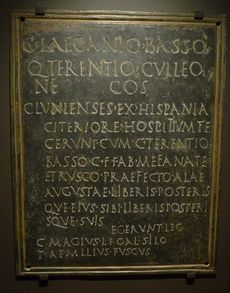 C LAECANIO BASSO
Q TERENTIO CVLLEO
NE COS
CLVNIENSES EX HISPANIA
CITERIORE HOSPITIVM FE
CERVNT CVM C TERENTIO
BASSO C F FAB MEFANATE
ETRVSCO PRAEFECTO ALAE
AVGVSTAE LIBERIS POSTERIS
QVE EIVS SIBI LIBERIS POSTERI
SQVE SVIS
EGERVNT LEG
C MAGIVS L F GAL SILO
T AEMILIVS FVSCVS